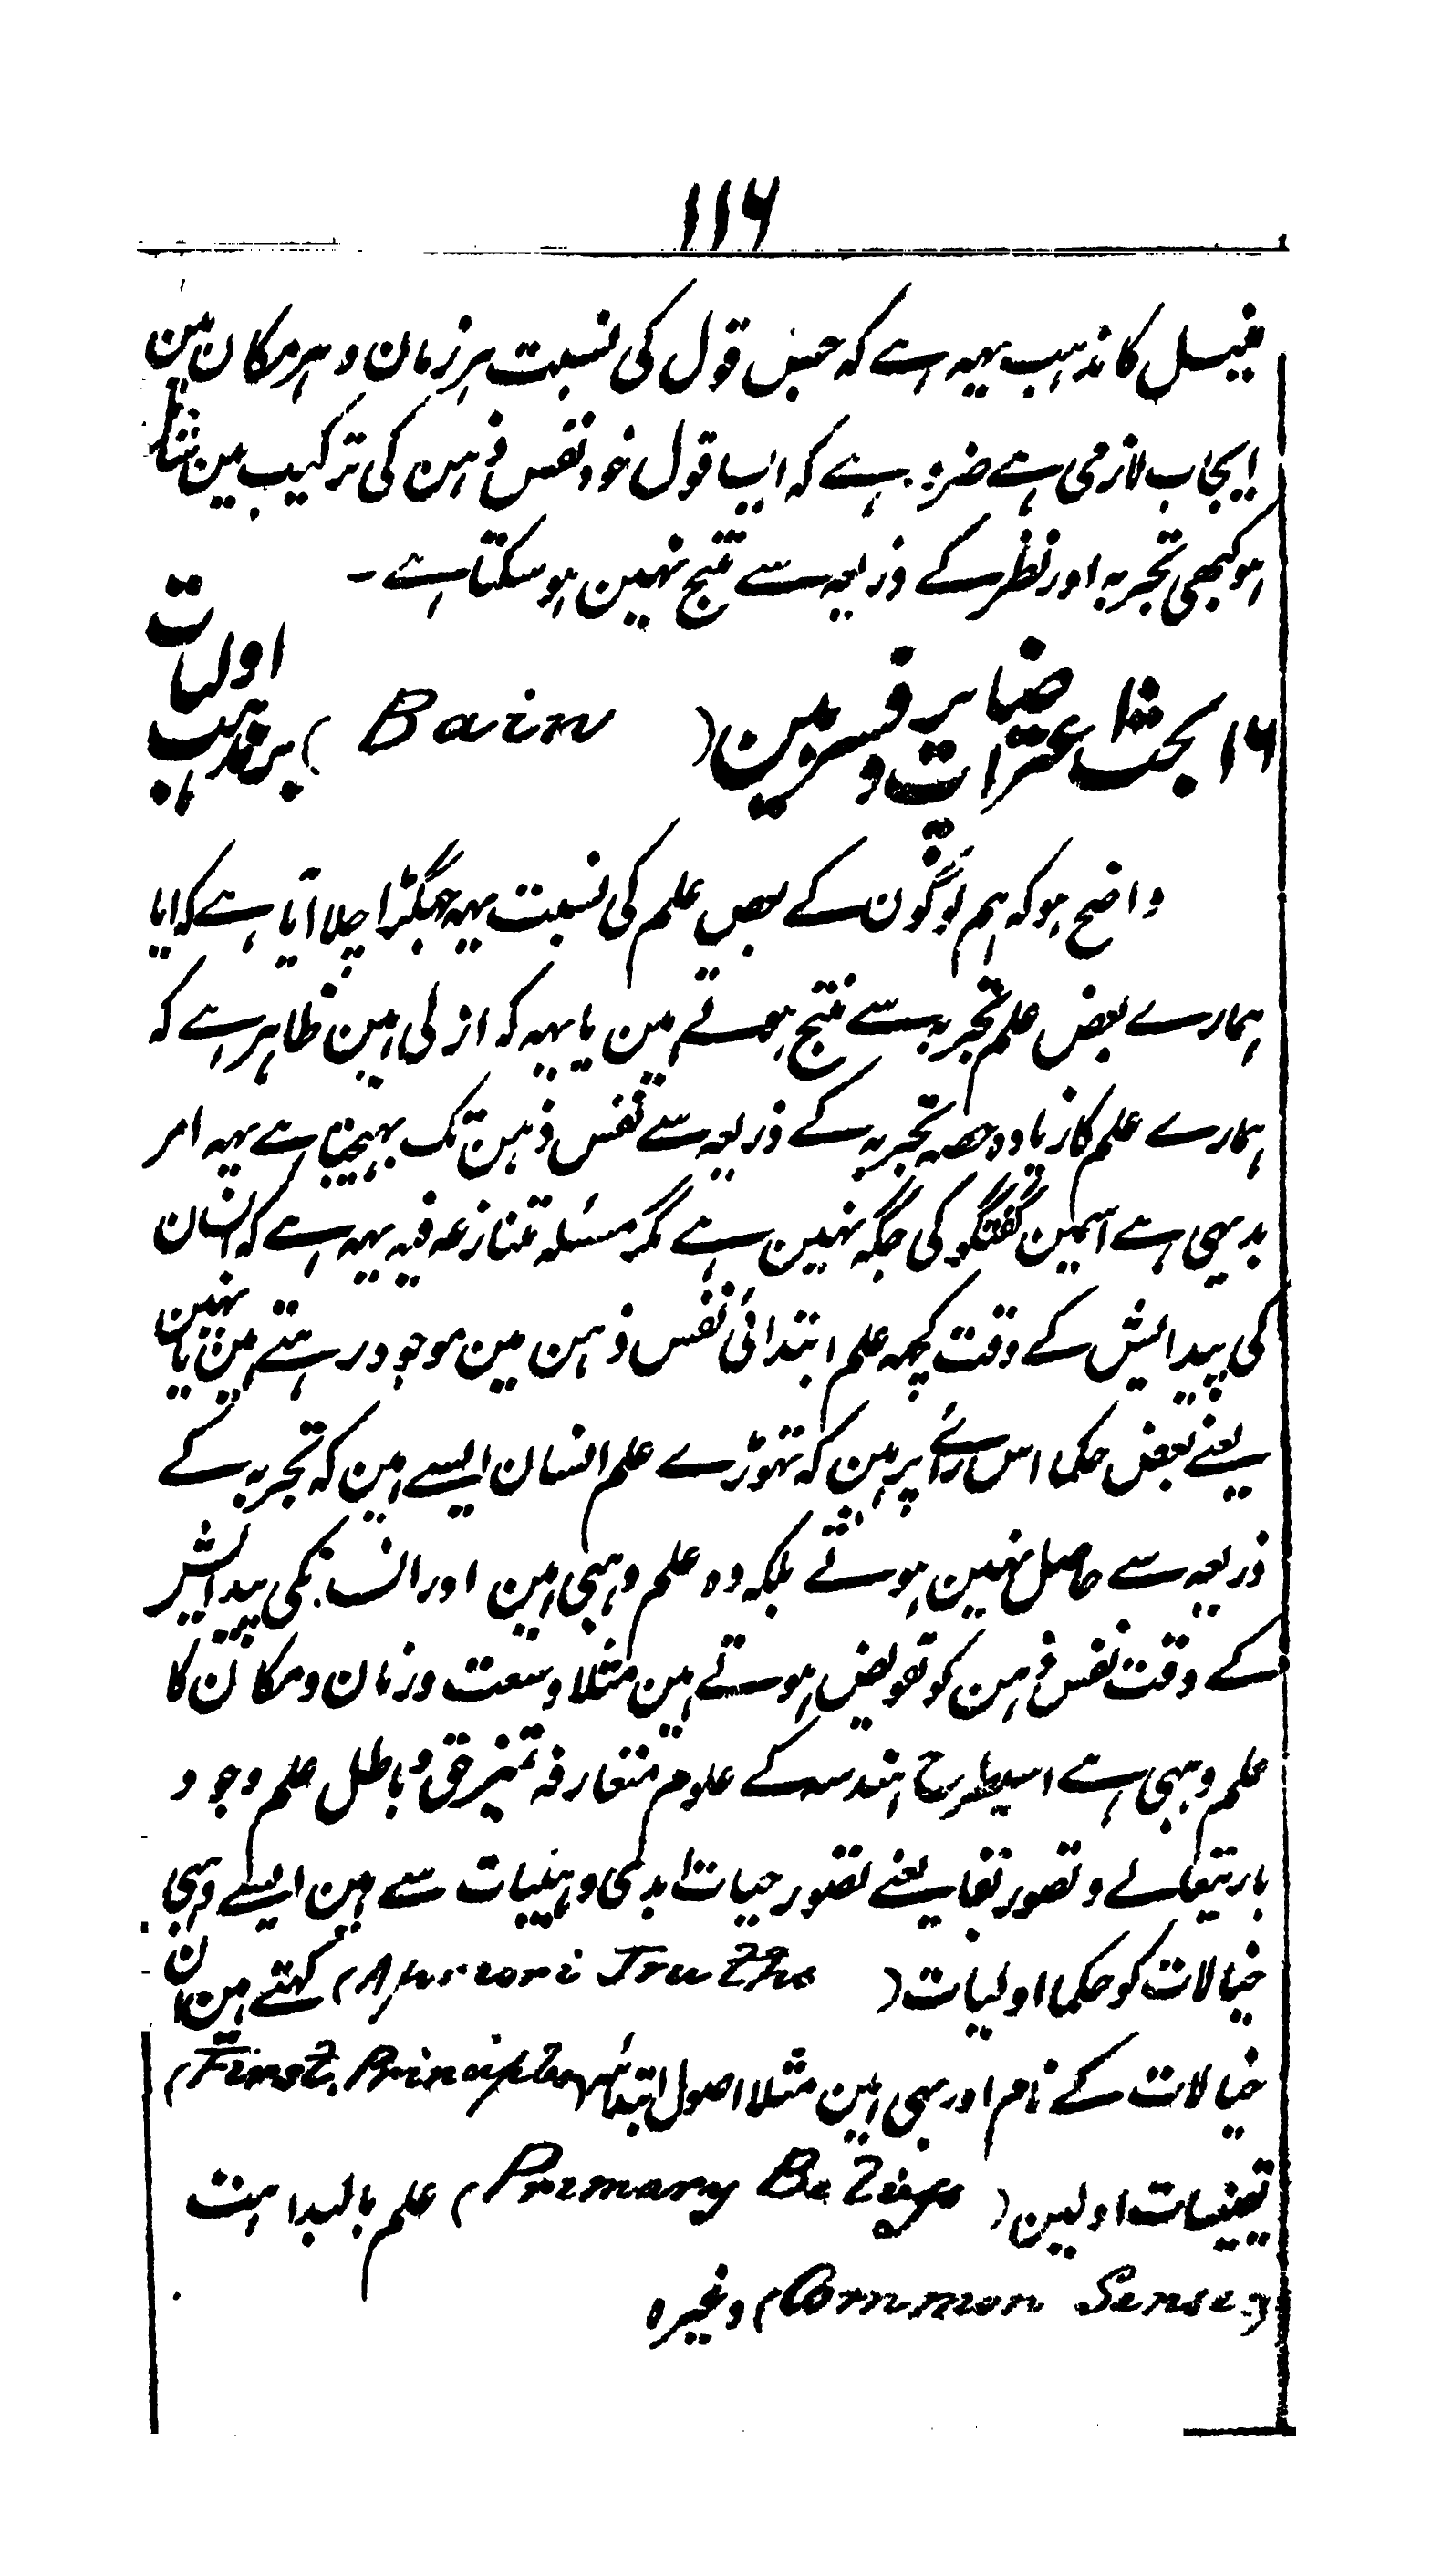 ۱۱۶
فیسل کا مذہب یہہ ہے کہ جس قول کی نسبت ہر زمان و ہر مکان مین
ایجاب لازمی ہے ضرور ہے کہ ایسا قول خود نفس ذہن کی ترکیب مین شامل
ہو کبھی تجربہ اور نظر کے ذریعہ سے منتج نہین ہو سکتا ہے -
۱۶ بحث اعتراضات پروفیسر بین ( Bain ) برمذہب اولیات
واضح ہو کہ ہم لوگون کے بعض علم کی نسبت یہہ جھگڑا چلا آیا ہے کہ ایا
ہمارے بعض علم تجربہ سے منتج ہوتے ہین یا یہہ کہ ازلی ہین ظاہر ہے کہ
ہمارے علم کا زیادہ حصہ تجربہ کے ذریعہ سے نفس ذہن تک پہنچتا ہے یہہ امر
بدیہی ہے اسمین گفتگو کی جگہ نہین ہے مگر مسئلہ متنازعہ فیہ یہہ ہے کہ انسان
کی پیدایش کے وقت کچھہ علم ابتدائی نفس ذہن مین موجود رہتے ہین یا نہین
یعنے بعض حکما اس رائے پر ہین کہ تھوڑے علم انسان ایسے ہین کہ تجربہ کے
ذریعہ سے حاصل نہین ہوتے بلکہ وہ علم وہبی ہین اور انسان کی پیدایش
کے وقت نفس ذہن کو تفویض ہوتے ہین مثلا وسعت و زمان و مکان کا
علم وہبی ہے اسیطرح ہندسہ کے علوم متعارفہ تمیز حق و باطل علم وجود
باریتعالے و تصور بقا یعنے تصور حیات ابدی وہبیات سے ہین ایسے وہبی
خیالات کو حکما اولیات ( Apriori Truths ) کہتے ہین ان
خیالات کے نام اور بھی ہین مثلا اصول ابتدائیہ ( First Principles )
یقینیات اولین ( Primary Beliefs ) علم بالبداہت
( Common Sense ) وغیرہ